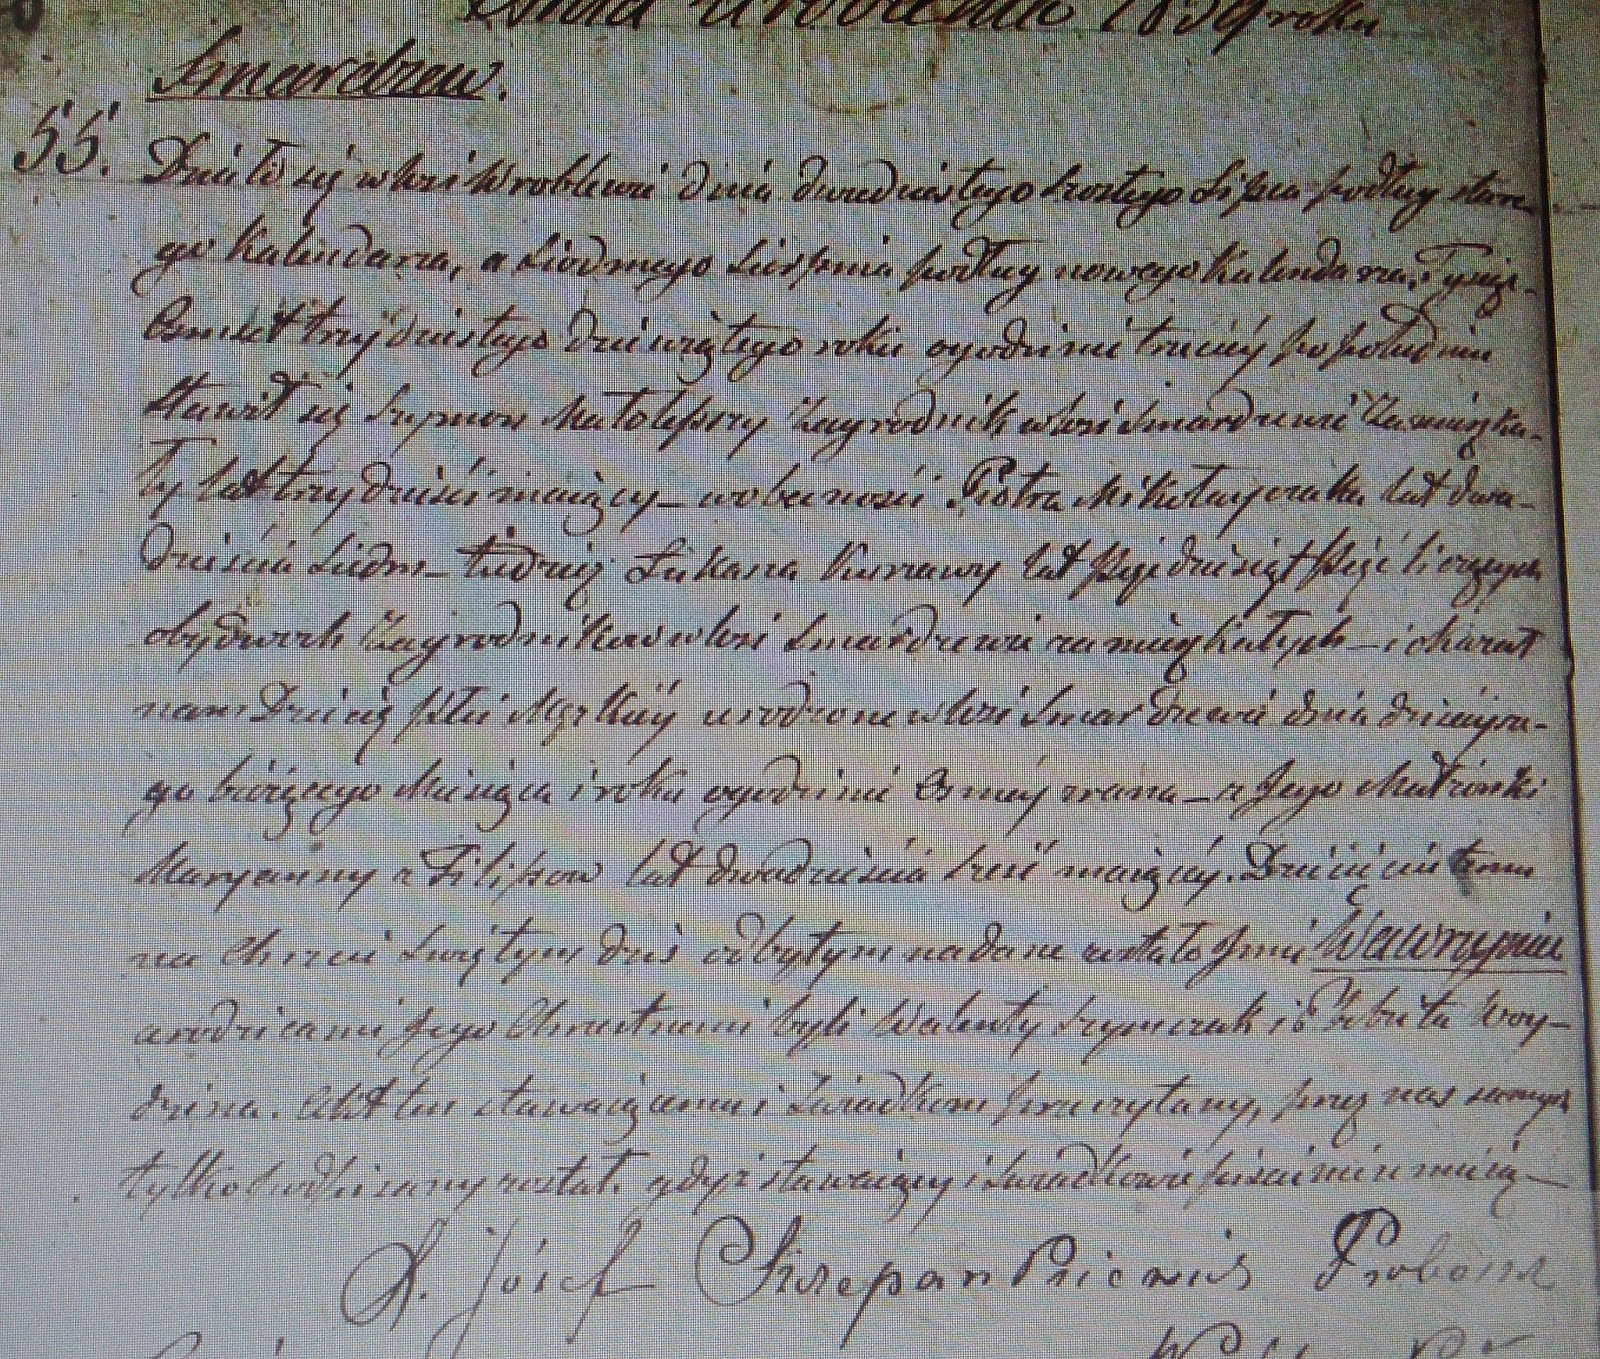 Urodzenia 1839 roku
Smardzew.
55. Działo się w Wsi Wroblewie dnia dwudziestego szostego Lipca podług stare
go Kalendarza, a Siodmego Sierpnia podług nowego Kalendarza, Tysiąc
Osmset trzydziestego dziewiątego roku o godzinie trzeciey po południu
Stawił się Szymon Małolepszy Zagrodnik w Wsi Smardzewie Zamięszka-
ły lat trzydzieści maiący – w obecności Piotra Mikołayczyka lat dwa-
dzieścia Siedm – tudzież Łukasza Kurzawy lat pięćdziesiąt pięć liczących
obydwóch Zagrodników w Wsi Smardzewie zamięszkałych – i okazał
nam Dziecię płci Męzkiéy urodzone w Wsi Smardzewie dnia dzisieysze-
go bieżącego Miesiąca i roku o godzinie Osmey zrana – z Jego Małżonki
Maryanny z Filipow lat dwadzieścia sześć maiącéy. Dziecięciu temu
na Chrzcie Swiętym dziś odbytym nadane zostało Jmie Wawrzyniec
a rodzicami Jego Chrzestnemi byli Walenty Szymczak i Elżbieta Woy-
dzina. Akt ten stawaiącemu i Swiadkom przeczytany, przez nas samych
tylko podpisany został. gdyż stawaiący i Swiadkowie pisać nie umieią –
X. Józef Szczepankiewicz Proboszcz